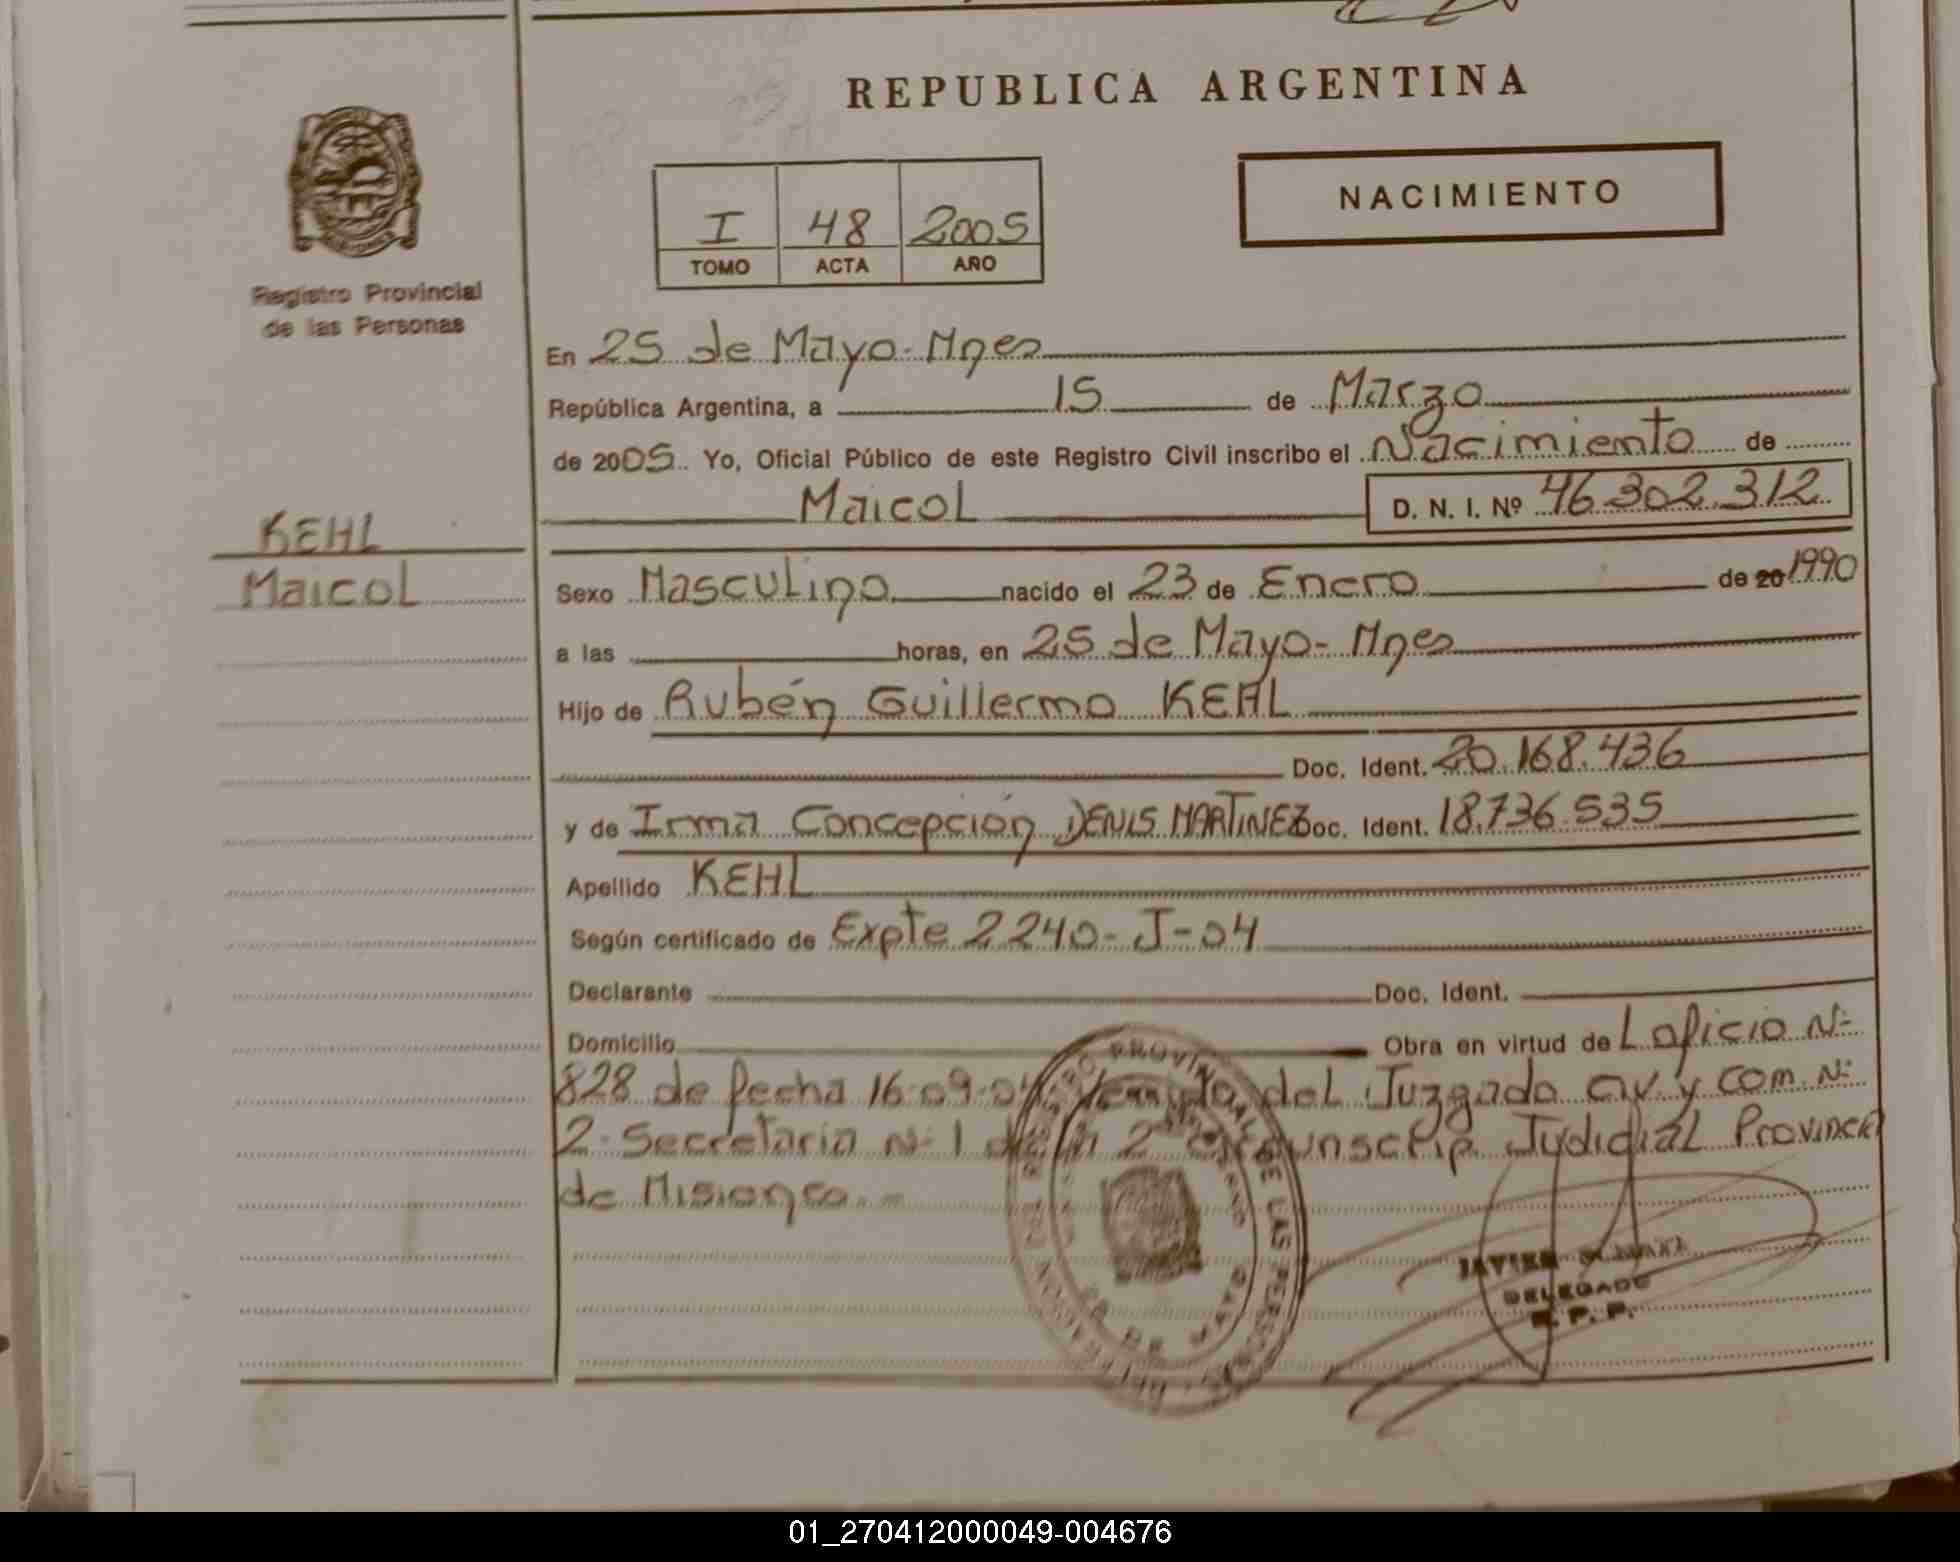 REPUBLICA ARGENTINA
NACIMIENTO
I 48 2005
TOMO ACTA AÑO
Registro Provincial
de las Personas
En 25 de Mayo-Mnes
República Argentina, a 15 de Marzo
de 2005. Yo, Oficial Público de este Registro Civil inscribo el Nacimiento de
Maicol D. N. I. Nº 46.302.312
KEHL
Maicol
Sexo Masculino nacido el 23 de Enero de 20 1990
a las horas, en 25 de Mayo-Mnes
Hijo de Rubén Guillermo KEHL
Doc. Ident. 20.168.436
y de Irma Concepción DENIS MARTINEZ Doc. Ident. 18.736.535
Apellido KEHL
Según certificado de Expte 2240-J-04
Declarante Doc. Ident.
Domicilio Obra en virtud de L oficio Nº
828 de fecha 16-09-04 del Juzgado civ. y com. Nº
2 Secretaria Nº 1 de la 2º circunscrip. Judicial Provincia
de Misiones.-
JAVIER
DELEGADO
R. P. P.
25 DE MAYO
01_270412000049-004676